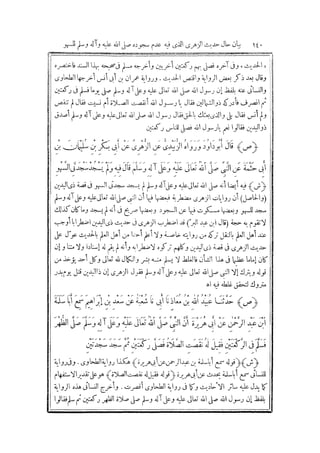 ١٤٠ بيان حال حديث الزهرى الذى فيه عدم سجوده صلى الله عليه وآله وسلم للسهو
الحديث، وفى آخره فصلى بهم ركعتين أخريين وأخرجه مسلم فى صحيحه بهذا السند فاختصره
وقال بعد ذكر بعض الرواية واقتص الحديث. ورواية عمران بن أبى أنس أخرجها الطحاوى
والنسائى عنه بلفظ إن رسول الله صلى الله تعالى عليه وعلى آله وسلم صلى يوما فسلم فى ركعتين
ثم انصرف فأدركه ذوالشمالين فقال يا رسول الله أنقصت الصلاة أم نسيت فقال لم تنقص
ولم أنس فقال بلى والذى بعثك بالحق فقال رسول الله صلى الله تعالى عليه وعلى آله وسلم أصدق
ذواليدين فقالوا نعم يارسول الله فصلى للناس ركعتين
﴿ص﴾ قال أبوداود ورواه الزبيدى عن الزهرى عن أبى بكر بن سليمان بن
أبى حثمة عن النبى صلى الله تعالى عليه وعلى آله وسلم قال فيه ولم يسجد سجدتى السهو
﴿ش﴾ فيه أيضا أنه صلى الله تعالى عليه وعلى آله وسلم لم يسجد سجدتى السهو فى قصة ذى اليدين
﴿والحاصل﴾ أن روايات الزهرى مضطربة فبعضها فيها أن النبى صلى الله تعالى عليه وعلى آله وسلم
سجد للسهو وبعضها مسكوت فيها عن السجود وبعضها صريح فى أنه لم يسجد وما كان كذلك
لا تقوم به حجة ﴿قال﴾ ابن عبد البر قد اضطرب الزهرى فى حديث ذى اليدين اضطرابا أوجب
عند أهل العلم بالنقل تركه من روايته خاصة ولا أعلم أحدا من أهل العلم بالحديث عول على
حديث الزهرى فى قصة ذى اليدين وكلهم تركوه لاضطرابه وأنه لم يقم له إسنادا ولا متنا وإن
كان إماما عظيما فى هذا الشأن فالغلط لا يسلم منه بشر والكمال لله تعالى وكل أحد يؤخذ من
قوله ويترك إلا النبى صلى الله تعالى عليه وعلى آله وسلم فقول الزهرى إن ذا اليدين قتل يوم بدر
متروك لتحقق غلطه فيه اه
﴿ص﴾ حدثنا عبيد الله بن معاذ نا أبى نا شعبة عن سعد بن إبراهيم سمع أبا سلمة
ابن عبد الرحمن عن أبى هريرة أن النبى صلى الله تعالى عليه وعلى آله وسلم صلى الظهر
فسلم فى الركعتين فقيل له نقصت الصلاة فصلى ركعتين ثم سجد سجدتين
﴿ش﴾ ﴿قوله سمع أباسلمة بن عبد الرحمن عن أبى هريرة﴾ هكذا رواية الطحاوى. وفى رواية
النسائى سمع أباسلمة يحدث عن أبى هريرة ﴿قوله فقيل له نقصت الصلاة﴾ هو على تقدير الاستفهام
كما يدل عليه سائر الأحاديث وكما فى رواية الطحاوى أقصرت. وأخرج النسائى هذه الرواية
بلفظ إن رسول الله صلى الله تعالى عليه وعلى آله وسلم صلى صلاة الظهر ركعتين ثم سلم فقالوا